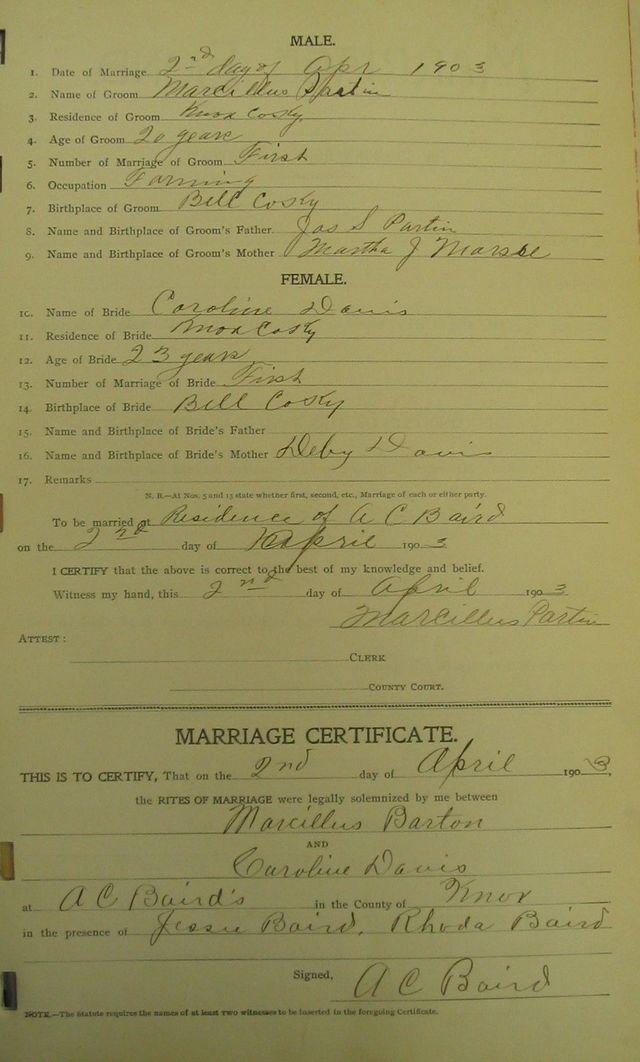 MALE.
1. Date of Marriage 2nd day of Apr 1903
2. Name of Groom Marcillus Partin
3. Residence of Groom Knox Co Ky
4. Age of Groom 20 years
5. Number of Marriage of Groom First
6. Occupation Farming
7. Birthplace of Groom Bell Co Ky
8. Name and Birthplace of Groom's Father Jas S Partin
9. Name and Birthplace of Groom's Mother Martha J
FEMALE.
10. Name of Bride Caroline Davis
11. Residence of Bride Knox Co Ky
12. Age of Bride 23 years
13. Number of Marriage of Bride First
14. Birthplace of Bride Bell Co Ky
15. Name and Birthplace of Bride's Father
16. Name and Birthplace of Bride's Mother Deby Davis
17. Remarks
N. B.—At Nos. 5 and 13 state whether first, second, etc., Marriage of each or either party.
To be married at Residence of A C Baird
on the 2nd day of April 1903
I CERTIFY that the above is correct to the best of my knowledge and belief.
Witness my hand, this 2nd day of April 1903
Marcillus Partin
ATTEST:
CLERK
COUNTY COURT.
MARRIAGE CERTIFICATE.
THIS IS TO CERTIFY, That on the 2nd day of April 1903,
the RITES OF MARRIAGE were legally solemnized by me between
Marcillus Barton
AND
Caroline Davis
at A C Baird's in the County of Knox
in the presence of Jessee Baird, Rhoda Baird
Signed, A C Baird
NOTE.—The Statute requires the names of at least two witnesses to be inserted in the foregoing Certificate.